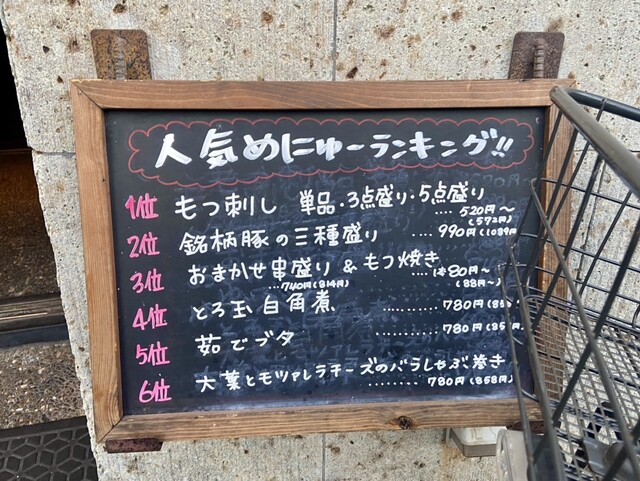 人気めにゅーランキング!!
1位 もつ刺し 単品・3点盛り・5点盛り
.... 520円〜
(572円)
2位 銘柄豚の三種盛り .... 990円(1089円
3位 おまかせ串盛り & もつ焼き
...740円(814円) ...1本80円〜
(88円〜)
4位 とろ玉白角煮 ........... 780円(858
5位 茹でブタ ........... 780円(858円
6位 大葉とモツァレラチーズのバラしゃぶ巻き
........ 780円(858円)